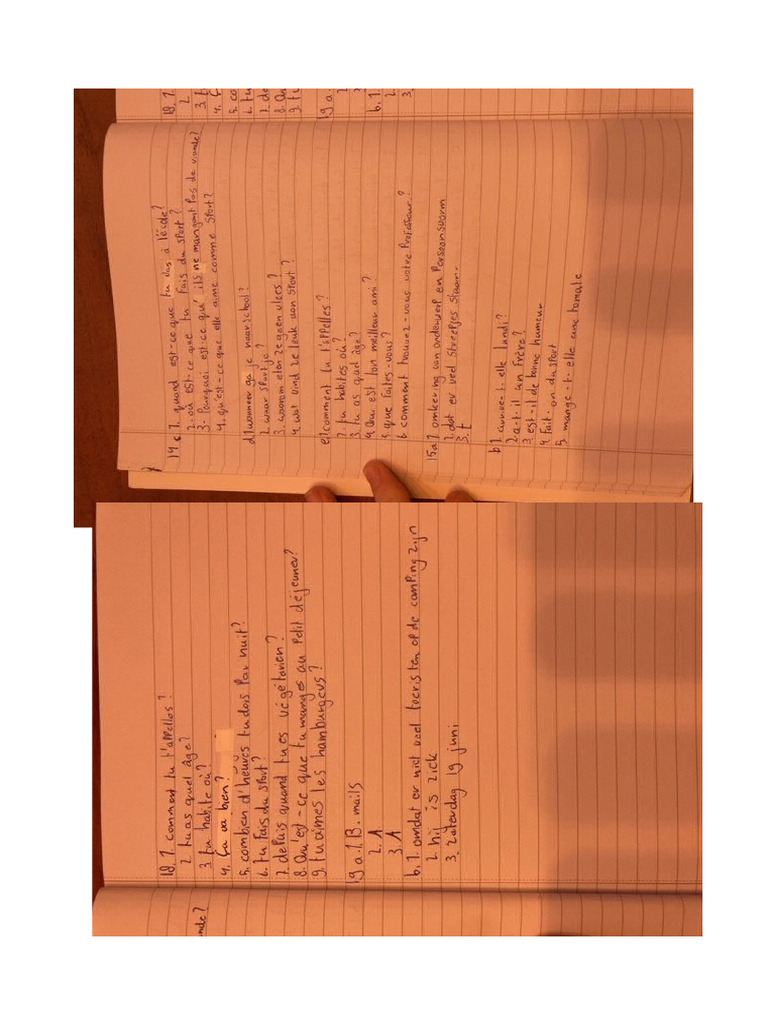 14 c 1. quand est-ce que tu vas à l'école?
2. ou est-ce que tu fais du sport?
3. Pourquoi est-ce qu'ils ne mangent pas de viande?
4. qu'est-ce que elle aime comme sport?
d 1 wanneer ga je naar school?
2. waar sport je?
3. waarom eten ze geen vlees?
4. wat vind ze leuk aan sport?
e 1 comment tu t'appelles?
2. tu habites où?
3. tu as quel âge?
4. Qui est ton meilleur ami?
5. que faites-vous?
6 comment trouvez-vous votre professeur?
15 a 1 omkering van onderwerp en persoonsvorm
2. dat er veel streepjes staan.
3. t
b 1. arrive-t-elle lundi?
2. a-t-il un frère?
3 est-il de bonne humeur
4. Fait-on du sport
5. mange-t-elle une tomate
18. 1. comment tu t'appelles?
2. tu as quel âge?
3 tu habite où?
4. Ça va bien?
5. combien d'heures tu dors par nuit?
6. tu fais du sport?
7. depuis quand tu es végétarien?
8. Qu'est-ce que tu manges au petit déjeuner?
9. tu aimes les hamburgers?
19 a. 1. B. mails
2. A
3. A
b. 1. omdat er niet veel toeristen op de camping zijn
2. hij is ziek
3. zaterdag 19 juni
ande?